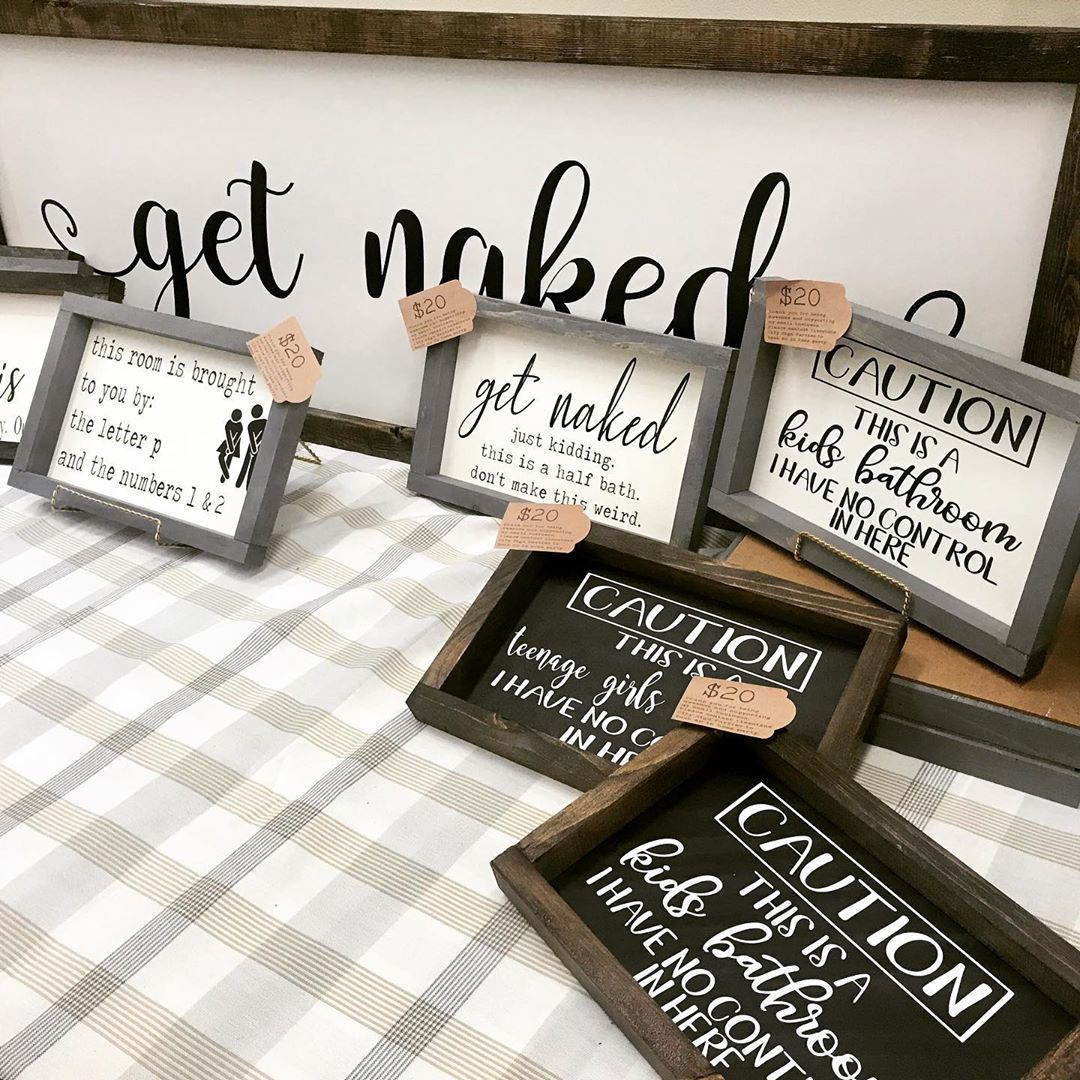 get naked
is
y. O
this room is brought
to you by:
the letter p
and the numbers 1 & 2
$20
$20
get naked
just kidding.
this is a half bath.
don't make this weird.
$20
CAUTION
THIS IS A
kids bathroom
I HAVE NO CONTROL
IN HERE
$20
CAUTION
THIS IS A
teenage girls
I HAVE NO CO
IN HE
$20
CAUTION
THIS IS A
kids bathroo
I HAVE NO CONT
IN HERE